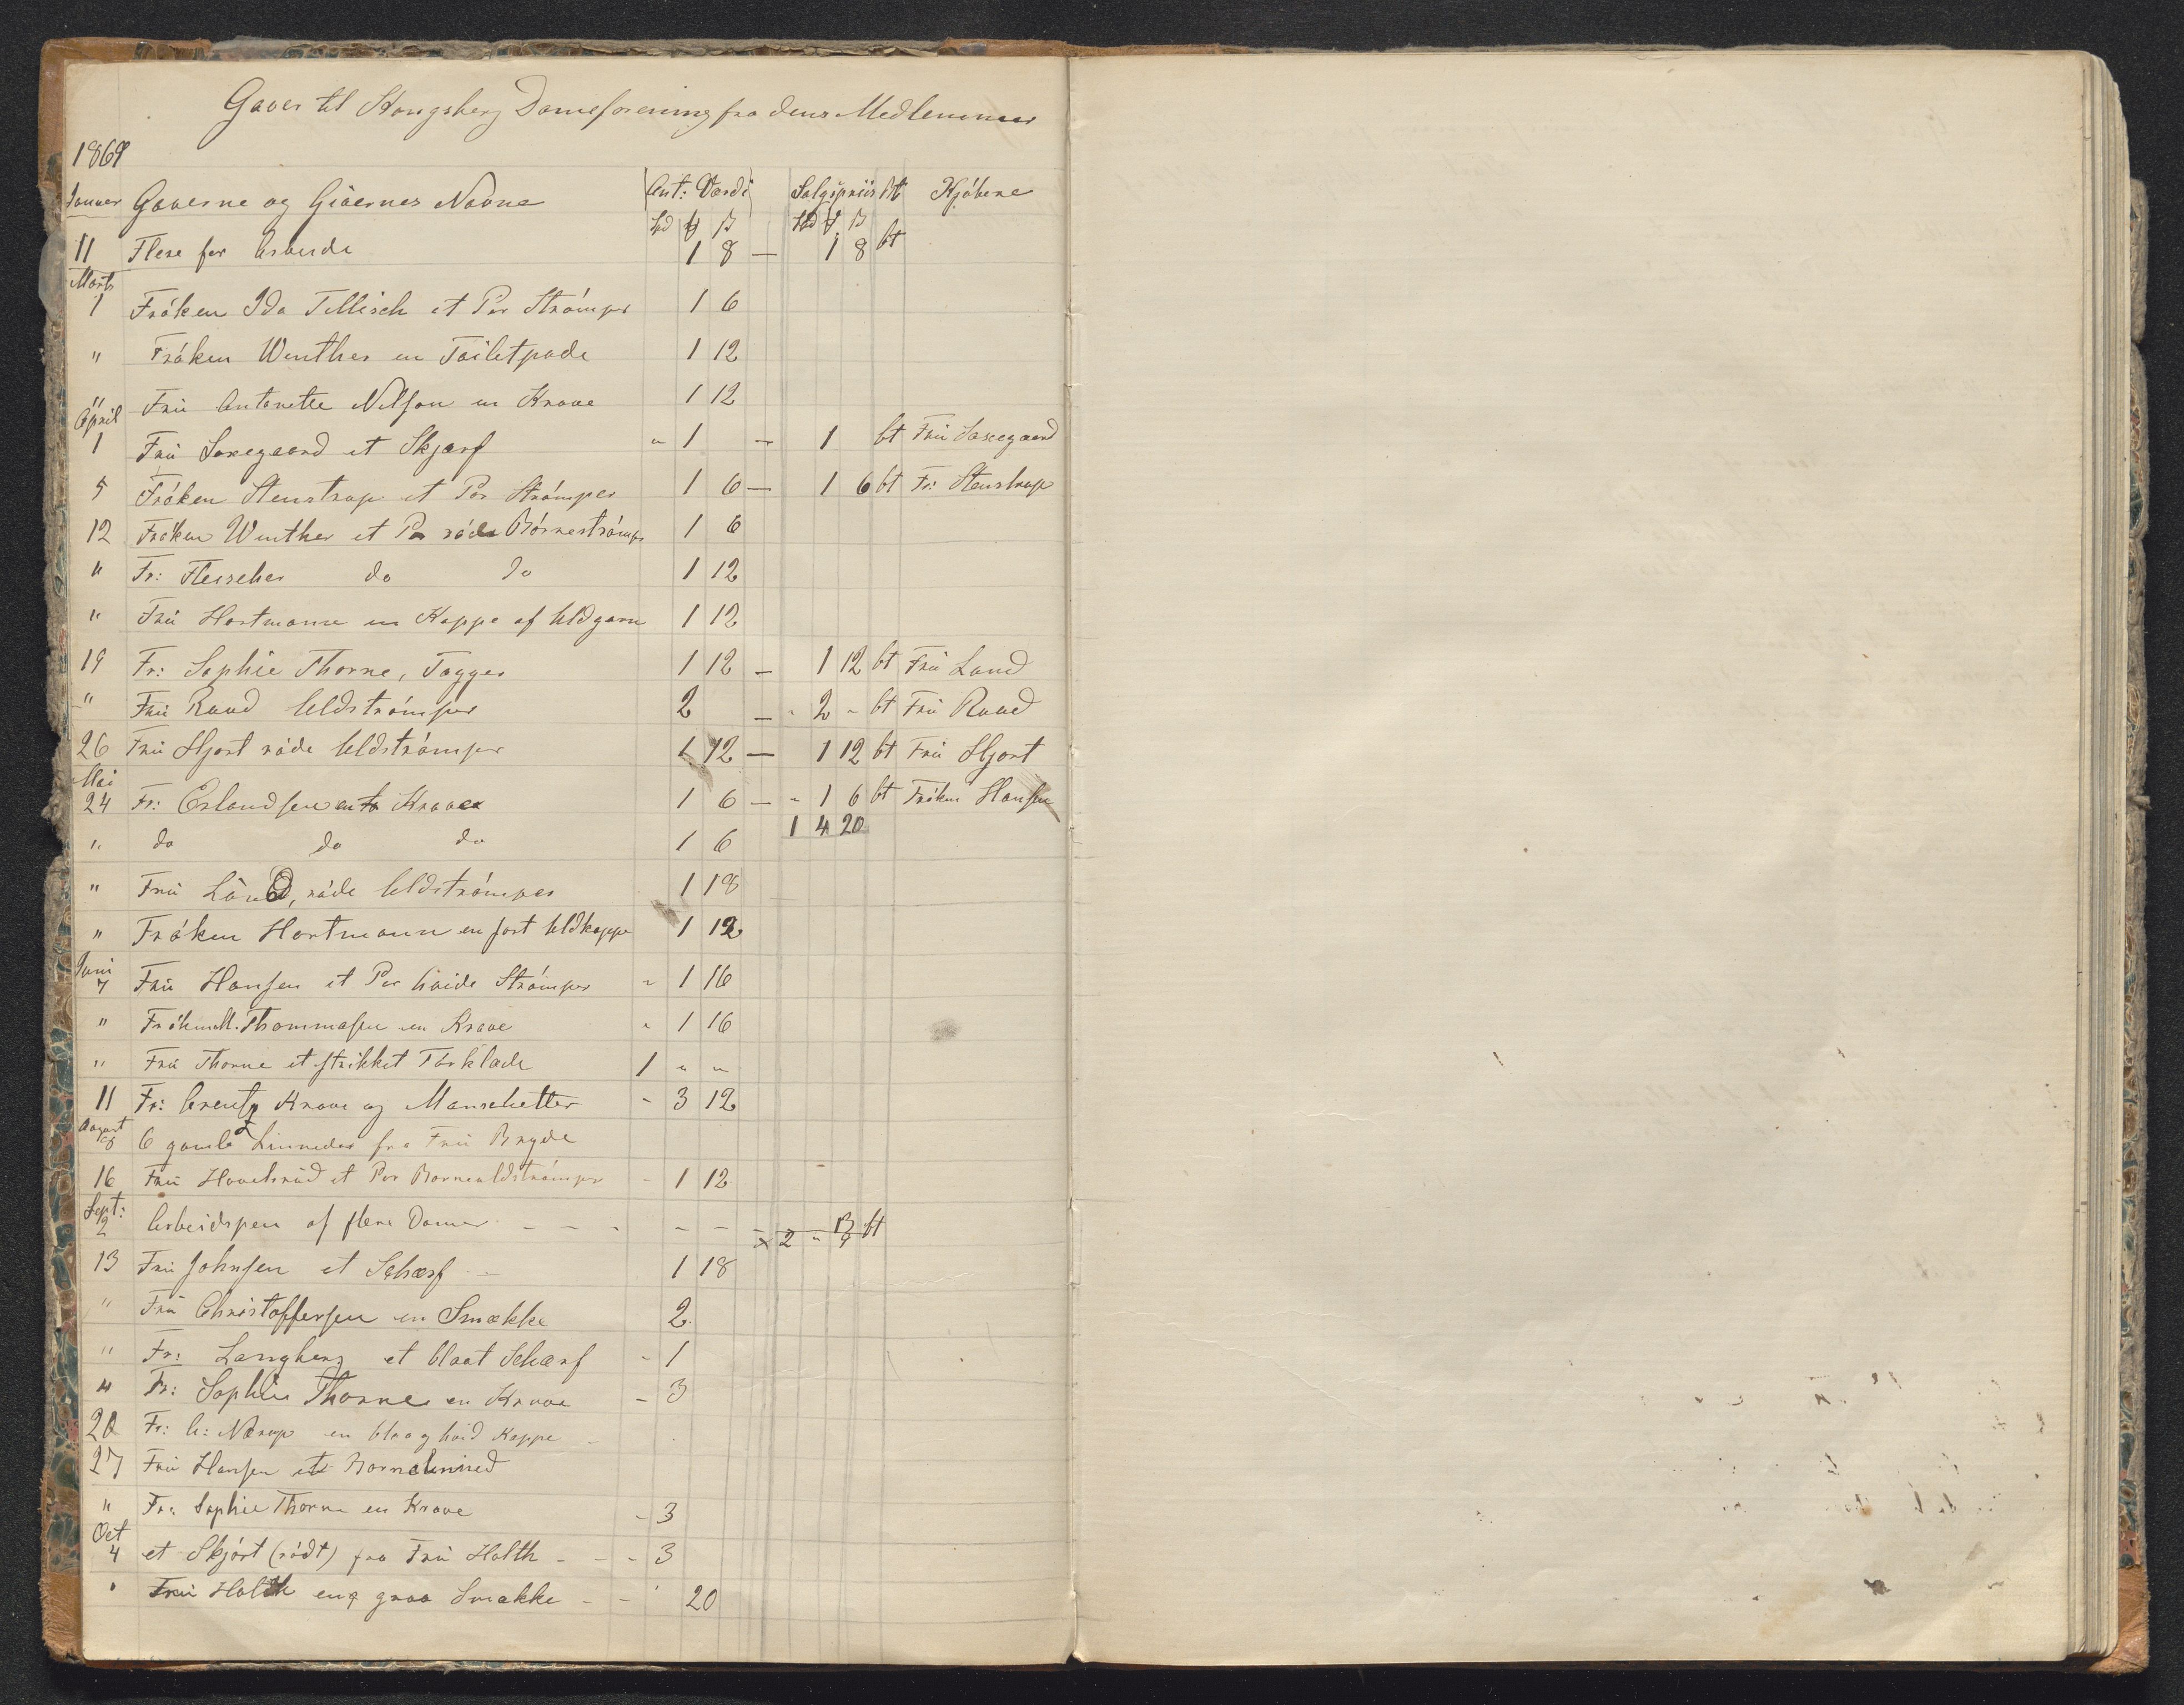 Gaver til Kongsberg Dameforening fra dens Medlemmer
1869
Januar Gaverne og Givernes Navne Ant: Værdi Salgspriis bt Kjøbere
11 Flere for Arbeide 1 8 — 1 8 bt
Marts
1 Frøken Ida Tellisch et Par Strømper 1 6
" Frøken Winther en Toiletpude 1 12
" Frü Antonette Nilsen en Krave 1 12
April
1 Frü Saxegaard et Skjærf " 1 — 1 bt Frü Saxegaard
5 Frøken Stenstrup et Par Strømper 1 6 — 1 6 bt Fr: Stenstrup
12 Frøken Winther et Par røde Børnestrømper 1 6
" Fr: Fleischer do do 1 12
" Frü Hartmann en Kappe af Uldgarn 1 12
19 Fr: Sophie Thorne, Tagger 1 12 — 1 12 bt Frü Land
" Frü Ruud Uldstrømper 2 — " 2 " bt Frü Ruud
26 Frü Hjort røde Uldstrømper 1 12 — 1 12 bt Frü Hjort
Mai
24 Fr: Erlandsen en Krave 1 6 — " 1 6 bt Frøken Hansen
1 4 20
" do do do 1 6
" Frü Land, røde Uldstrømper 1 18
" Frøken Hartmann en sort Uldkappe 1 12
Juni
7 Frü Hansen et Par hvide Strømper " 1 16
" Frøken M. Thommasen en Krave " 1 16
" Frü Thorne et strikket Tørklæde 1 " "
11 Fr: Arentz Krave og Manschetter - 3 12
August
6 gamle Linneder fra Frü Bryde
16 Frü Hovelsrüd et Par Børneuldstrømper - 1 12
Sept:
2 Arbeidspen af flere Damer - - - - - - x 2 " bt
13 Frü Johnsen et Schærf 1 18
" Frü Christoffersen en Smække 2
" Fr: Langberg et blaat Schærf - 1
" Fr: Sophie Thorne en Krave - 3
20 Fr: A: Nærup en blaa g hvid Kappe -
27 Frü Hansen et Børnelinned
" Fr: Sophie Thorne en Krave - 3
Oct
4 et Skjørt (rødt) fra Frü Holth - - - 3
" Frü Holth en graa Smække - - 20